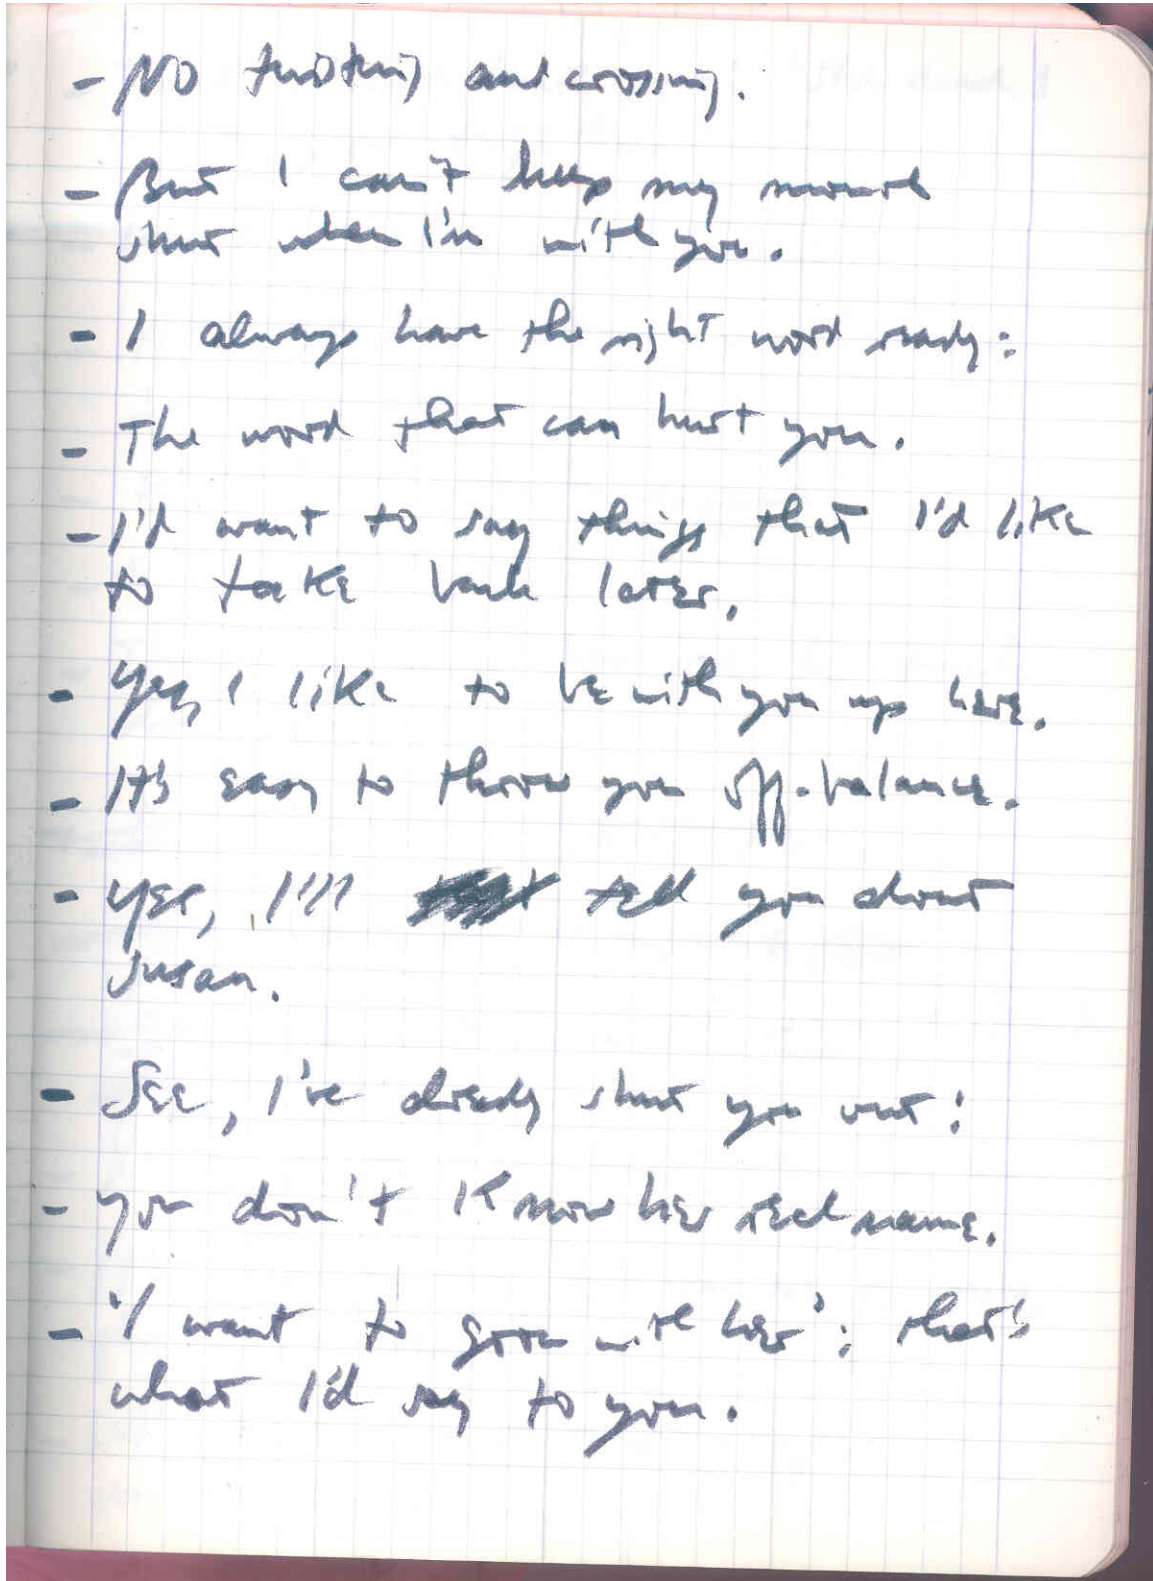 - No twisting and crossing.
- But I can't keep my mouth
shut when I'm with you.
- I always have the right word ready:
- The word that can hurt you.
- I'd want to say things that I'd like
to take back later.
- Yes, I like to be with you up here.
- It's easy to throw you off-balance.
- Yes, I'll tell you about
Susan.
- See, I've already shut you out:
- you don't know her real name.
- "I want to grow with her": that's
what I'd say to you.